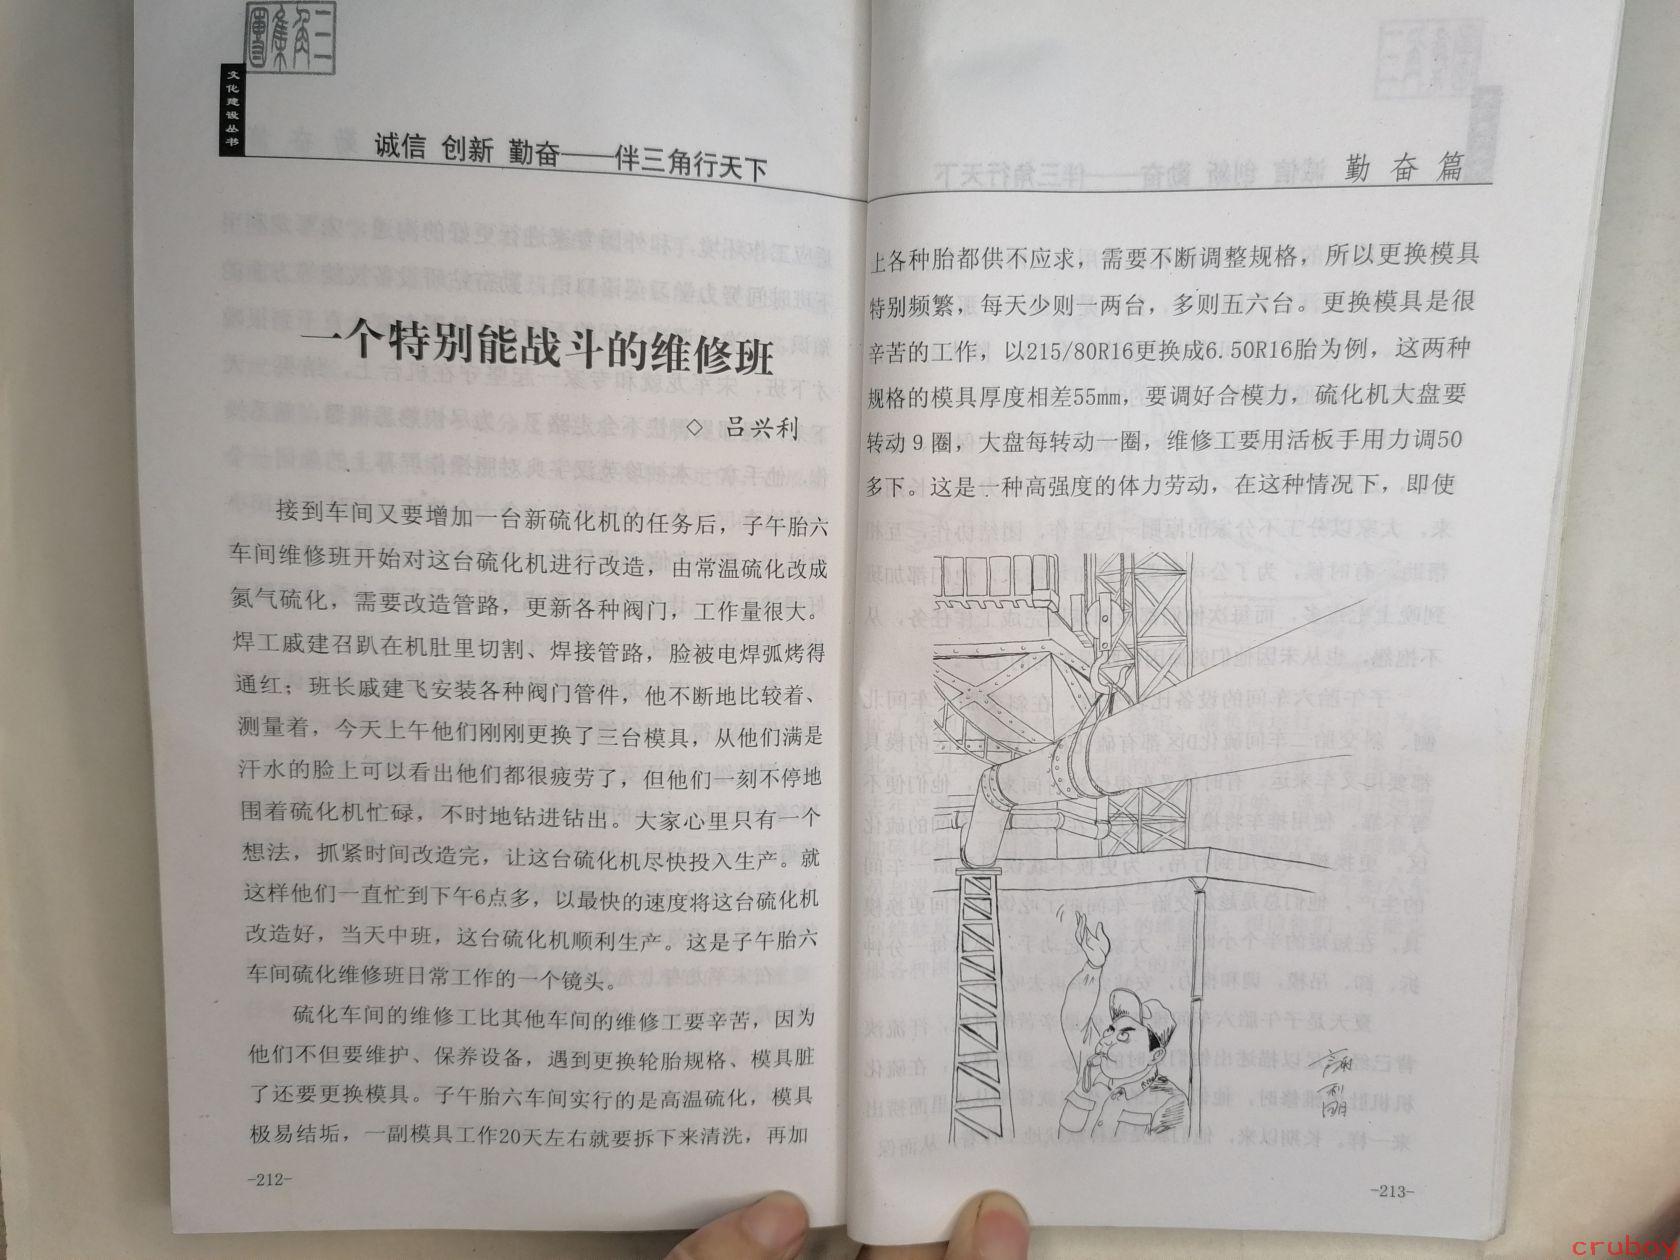 三角集团
文化建设丛书
诚信 创新 勤奋——伴三角行天下
一个特别能战斗的维修班
◇ 吕兴利
接到车间又要增加一台新硫化机的任务后，子午胎六
车间维修班开始对这台硫化机进行改造，由常温硫化改成
氮气硫化，需要改造管路，更新各种阀门，工作量很大。
焊工戚建召趴在机肚里切割、焊接管路，脸被电焊弧烤得
通红；班长戚建飞安装各种阀门管件，他不断地比较着、
测量着，今天上午他们刚刚更换了三台模具，从他们满是
汗水的脸上可以看出他们都很疲劳了，但他们一刻不停地
围着硫化机忙碌，不时地钻进钻出。大家心里只有一个
想法，抓紧时间改造完，让这台硫化机尽快投入生产。就
这样他们一直忙到下午6点多，以最快的速度将这台硫化机
改造好，当天中班，这台硫化机顺利生产。这是子午胎六
车间硫化维修班日常工作的一个镜头。
硫化车间的维修工比其他车间的维修工要辛苦，因为
他们不但要维护、保养设备，遇到更换轮胎规格、模具脏
了还要更换模具。子午胎六车间实行的是高温硫化，模具
极易结垢，一副模具工作20天左右就要拆下来清洗，再加
-212-
勤奋篇
上各种胎都供不应求，需要不断调整规格，所以更换模具
特别频繁，每天少则一两台，多则五六台。更换模具是很
辛苦的工作，以215/80R16更换成6.50R16胎为例，这两种
规格的模具厚度相差55mm，要调好合模力，硫化机大盘要
转动9圈，大盘每转动一圈，维修工要用活板手用力调50
多下。这是一种高强度的体力劳动，在这种情况下，即使
-213-
crubox